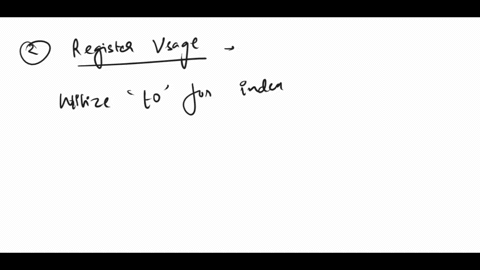 ② Register Usage -
Utilize 't0' for index